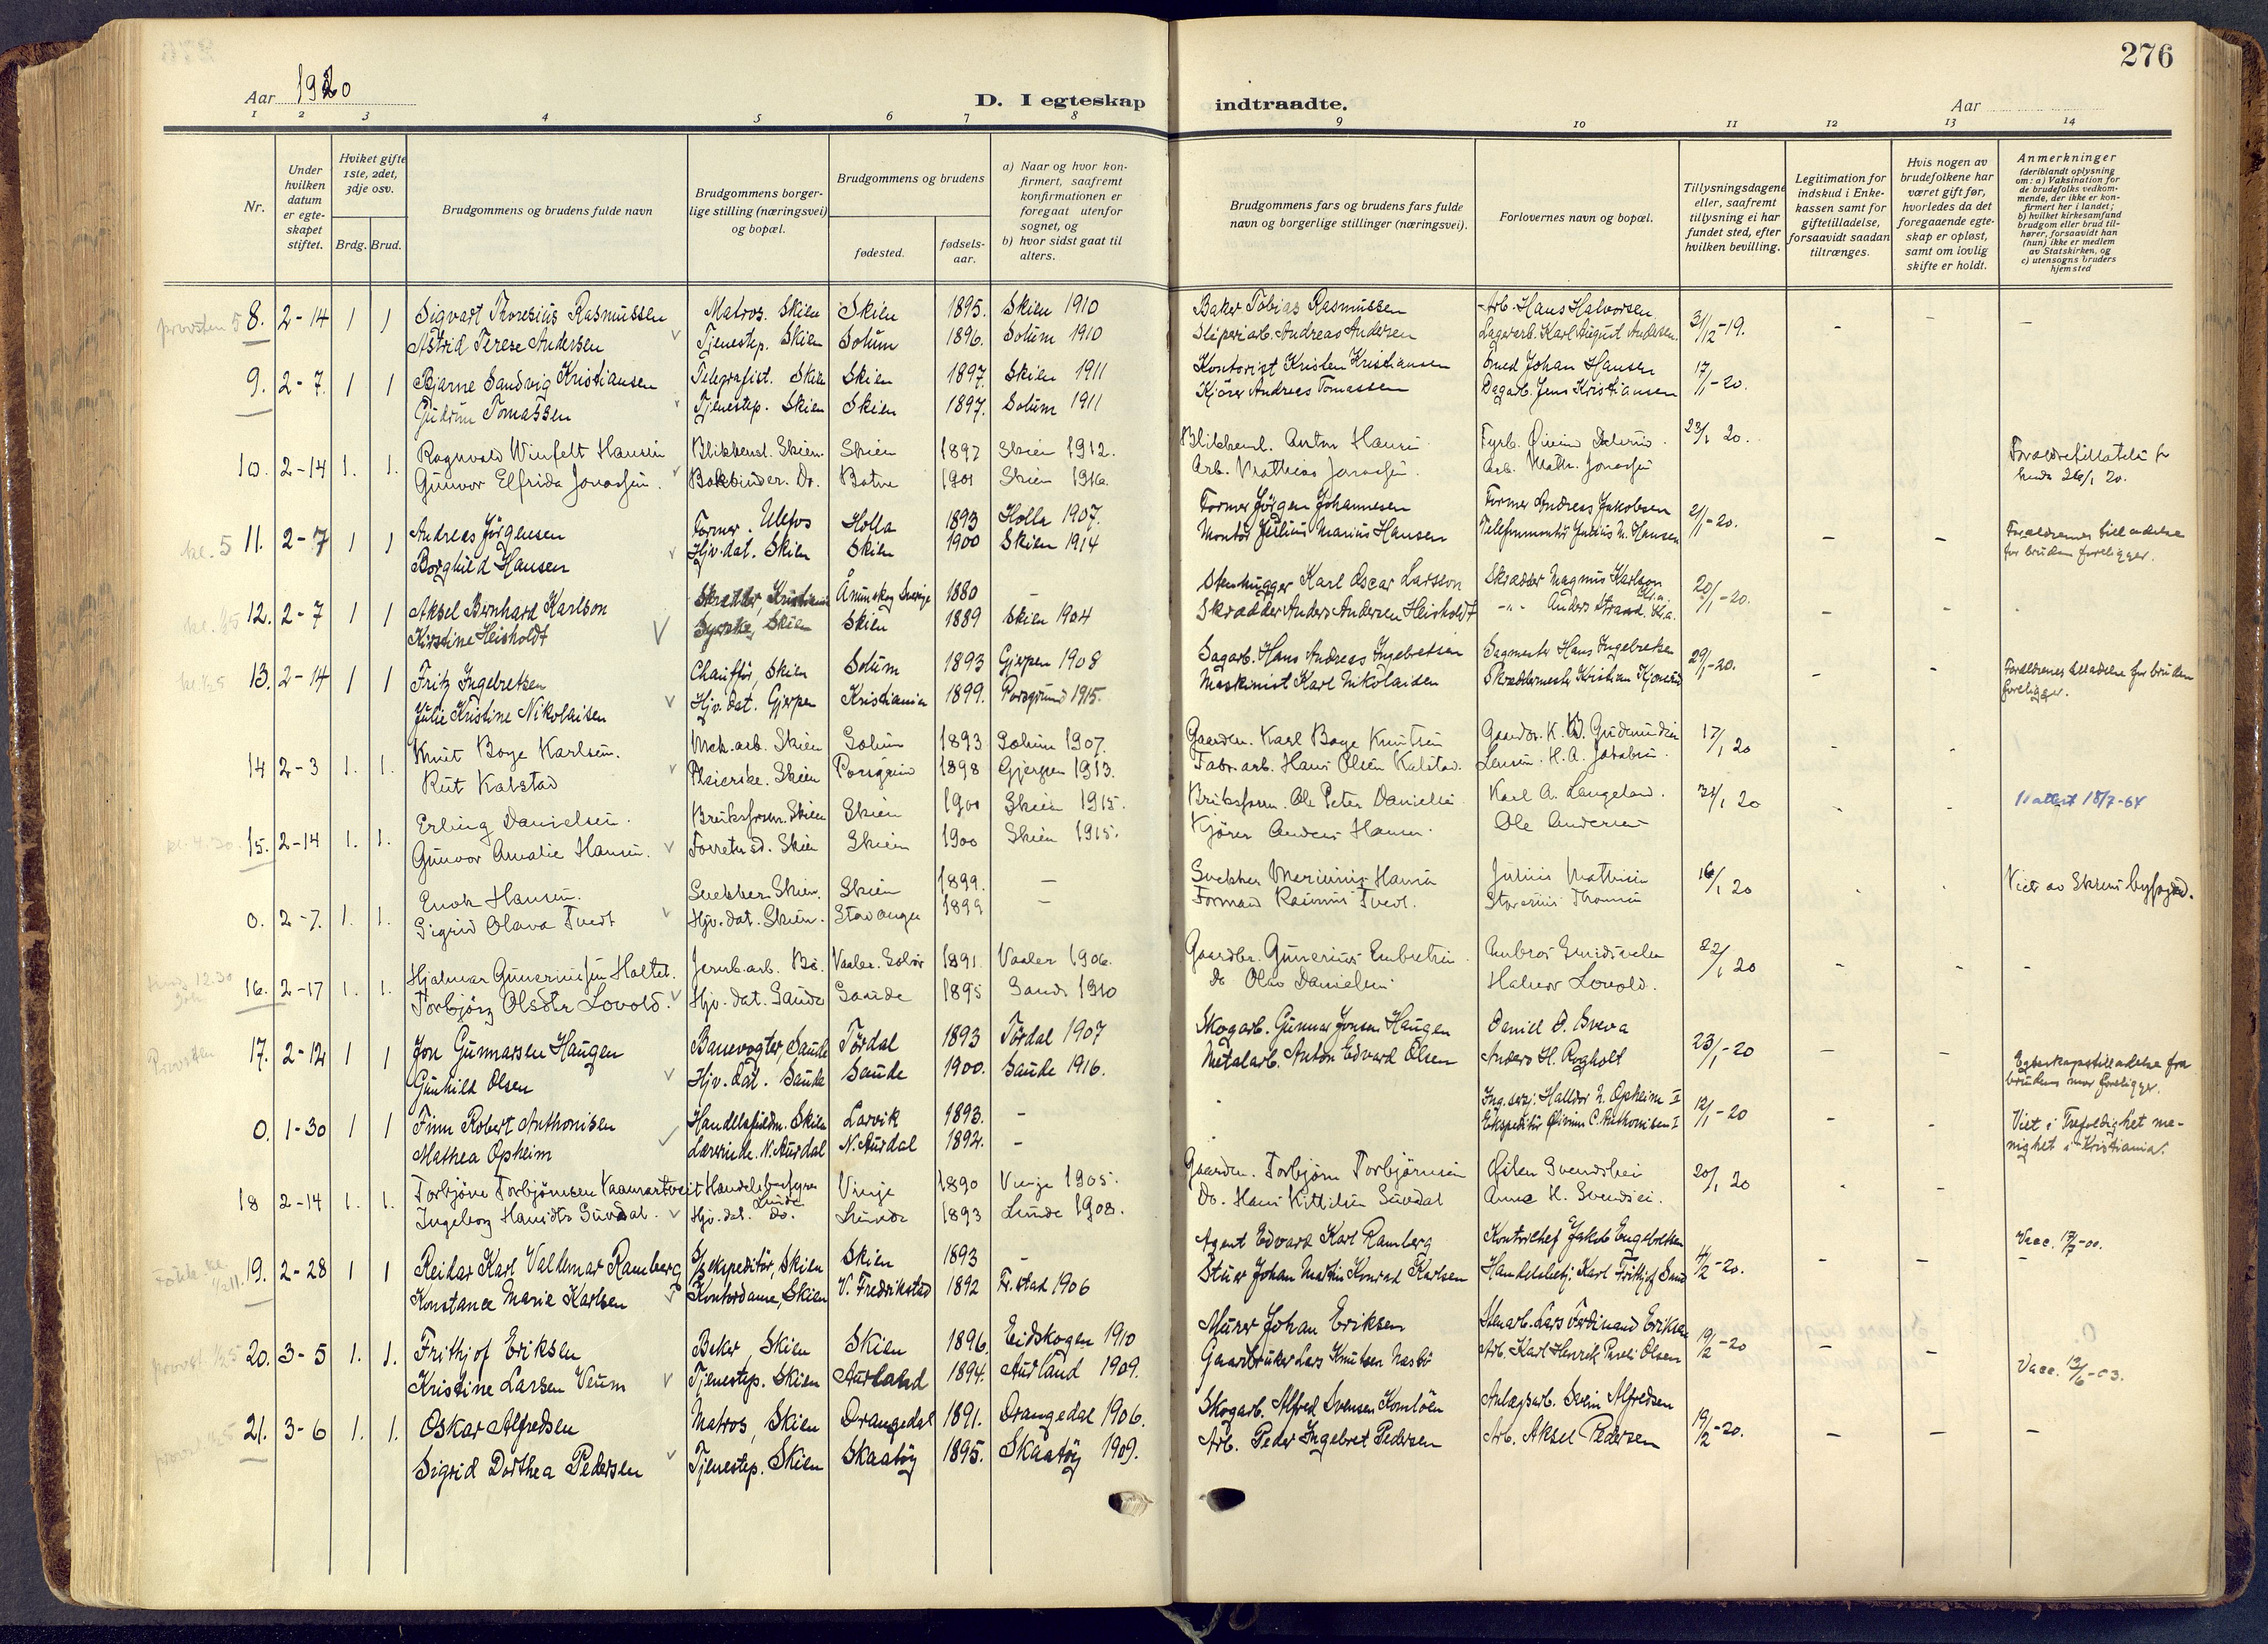 276
Aar 1920
D. I egteskap indtraadte.
Aar
1 2 3 4 5 6 7 8 9 10 11 12 13 14
Nr.
Under hvilken datum er egteskapet stiftet.
Hviket gifte 1ste, 2det, 3dje osv.
Brdg. Brud.
Brudgommens og brudens fulde navn
Brudgommens borgerlige stilling (næringsvei) og bopæl.
Brudgommens og brudens
fødested.
fødselsaar.
a) Naar og hvor konfirmert, saafremt konfirmationen er foregaat utenfor sognet, og
b) hvor sidst gaat til alters.
Brudgommens fars og brudens fars fulde navn og borgerlige stillinger (næringsvei).
Forlovernes navn og bopæl.
Tillysningsdagene eller, saafremt tillysning ei har fundet sted, efter hvilken bevilling.
Legitimation for indskud i Enkekassen samt for giftetilladelse, forsaavidt saadan tiltrænges.
Hvis nogen av brudefolkene har været gift før, hvorledes da det foregaaende egteskap er opløst, samt om lovlig skifte er holdt.
Anmerkninger (deriblandt oplysning om: a) Vaksination for de brudefolks vedkommende, der ikke er konfirmert her i landet; b) hvilket kirkesamfund brudgom eller brud tilhører, forsaavidt han (hun) ikke er medlem av Statskirken, og c) utensogns bruders hjemsted
provsten 5 8. 2-14 1 1 Sigvart Thoresius Rasmussen Matros. Skien Skien 1895. Skien 1910 Baker Tobias Rasmussen Arb. Hans Halvorsen 31/12-19. - - -
Astrid Terese Andersen Tjenestep. Skien Solum 1896. Solum 1910 Sliperiarb. Andreas Andersen Lagerarb. Karl August Andersen
9. 2-7. 1 1 Bjarne Sandvig Kristiansen Telegrafist. Skien Skien 1897. Skien 1911 Kontorist Kristen Kristiansen Smed Johan Hansen 17/1-20.
Gudrun Tomassen Tjenestep. Skien Skien 1897. Solum 1911 Kjører Andreas Tomassen Dagarb. Jens Kristiansen
10. 2-14 1. 1. Ragnvald Winfelt Hansen Blikkensl. Skien. Skien 1897 Skien 1912. Blikkensl. Anton Hansen Fyrb. 23/1 20. Forældretilladelse for
Gunvor Elfrida Jonassen. Bokbinder. Do. Botne 1901 Skien 1916. Arb. Mathias Jonassen. Arb. Math. Jonassen 26/1 20.
kl. 5 11. 2-7 1 1 Andreas Jørgensen Former. Ulefos Holla 1893 Holla 1907. Former Jørgen Johannesen Former Andreas Jakobsen 21/1-20. - - Forældrenes tilladelse
Borghild Hansen Hjv. dat. Skien Skien 1900 Skien 1914 Montør Julius Marius Hansen Telefonmontør Julius M. Hansen for bruden foreligger.
12. 2-7 1 1 Aksel Bernhard Karlson Skrædder, Kristiania Åmunskog Sverige 1880 - Stenhugger Karl Oscar Larsson Skrædder Magnus Karlson Kr.a. 20/1-20. -
Kirstine Heisholdt Syerske, Skien Skien 1889 Skien 1904 Skrædder Anders Andersen Heisholdt -"- Anders Strand. Kr.a.
13. 2-14 1 1 Fritz Ingebretsen Chauffør, Skien Solum 1893 Gjerpen 1908 Sagarb. Hans Andreas Ingebretsen Sagmester Hans Ingebretsen 29/1-20. - - Forældrenes tilladelse for bruden
Julie Kristine Nikolaisen Hjv. dat. Gjerpen Kristiania 1899. Porsgrund 1915. Maskinist Karl Nikolaisen Skræddermester Kristian foreligger.
14 2-3 1. 1. Knut Boye Karlsen. Mek. arb. Skien Solum 1893 Solum 1907. Gaardbr. Karl Boye Knutsen Gaardbr. K. B. Gudmundsen 17/1 20 - -
Rut Kalstad Pleierske. Skien Porsgrun 1898 Gjerpen 1913. Fabr. arb. Hans Olsen Kalstad. H. A. Jakobsen.
kl. 4.30 15. 2-14 1. 1. Erling Danielsen. Skien Skien 1900 Skien 1915. Ole Peter Danielsen Karl A. Langeland. 1 20 - - 18/7-64
Gunvor Amalie Hansen. Skien Skien 1900 Skien 1915. Kjører Anders Hansen. Ole Andersen
0. 2-7. 1. 1. Enok Hansen. Snekker. Skien. Skien 1899. - Snekker Hansen Julius Mathisen 16/1 20 Viet av Skiens byfoged.
Sigrid Olava Tvedt Hjv. dat. Skien. Stavanger 1899 - Formand Rasmus Tvedt.
12.30 16. 2-17 1. 1. Hjalmar Gunerius Holtet. Jernb. arb. Bø. Vaaler. Solør 1891. Vaaler 1906. Gaardbr. Gunerius Embretsen. Ambros 22/1 20 - - -
Torbjørg Olsdtr Lovold. Hjv. dat. Saude Saude 1895 Saude 1910 Do Olav Danielsen Halvor Lovold.
Provsten 17. 2-12 1 1 Jon Gunnarsen Haugen Banevogter, Saude Tørdal 1893 Tørdal 1907 Skogarb. Gunnar Jonsen Haugen Daniel D. Sveva 23/1-20 - - Egteskapstilladelse fra
Gunhild Olsen Hjv. dat. Saude Saude 1900. Saude 1916. Metalarb. Anton Edvard Olsen Anders H. Rogholt brudens mor foreligger.
0. 1-30 1 1 Finn Robert Anthonisen Handelsfuldm. Skien Larvik 1893. - Halldor N. Opheim II 12/1-20 - - Viet i Trefoldighet me-
Mathea Opheim Lærerinde. N. Aurdal N. Aurdal 1892. - Ekspeditør C. Anthonisen I nighet i Kristiania.
18 2-14 1. 1. Torbjørn Torbjørnsen Vaamartveit Handelsbestyrer Lunde Vinje 1890 Vinje 1905. Gaardbr. Torbjørn Torbjørnsen 20/1 20
Ingeborg Hansdtr Suvdal. Hjv. dat. Do. Lunde 1893 Lunde 1908. Do. Hans Kittilsen Suvdal Anne H. Svendsei.
19. 2-28 1 1 Reidar Karl Valdemar Ramberg ekspeditør, Skien Skien 1893 - Agent Edvard Karl Ramberg Kontorchef Jakob Engebretsen 4/2-20. - - Vacc. 17/7-00.
Konstance Marie Karlsen Kontordame, Skien V. Fredrikstad 1892 Fr.stad 1906 Stuer Johan Martin Konrad Karlsen Handelsbetj. Karl Frithjof -
20. 3-5 1. 1. Frithjof Eriksen Baker, Skien Skien 1896. Eidskogen 1910 Murer Johan Eriksen Stenarb. Lars Ferdinand Eriksen 19/2-20 - -
Kristine Larsen Veum Tjenestep. Skien Aurland 1894. Aurland 1909. Gaardbruker Lars Knutsen Næsbø Arb. Karl Henrik Olsen Vacc. 13/6-03.
21. 3-6 1. 1. Oskar Alfredsen Matros, Skien Drangedal 1891. Drangedal 1906. Skogarb. Alfred Svensen Anlægsarb. Svein Alfredsen 19/2-20. - - -
Sigrid Dorthea Pedersen Tjenestep. Skien Skaatøy 1895. Skaatøy 1909. Arb. Peder Ingebret Pedersen Arb. Aksel Pedersen